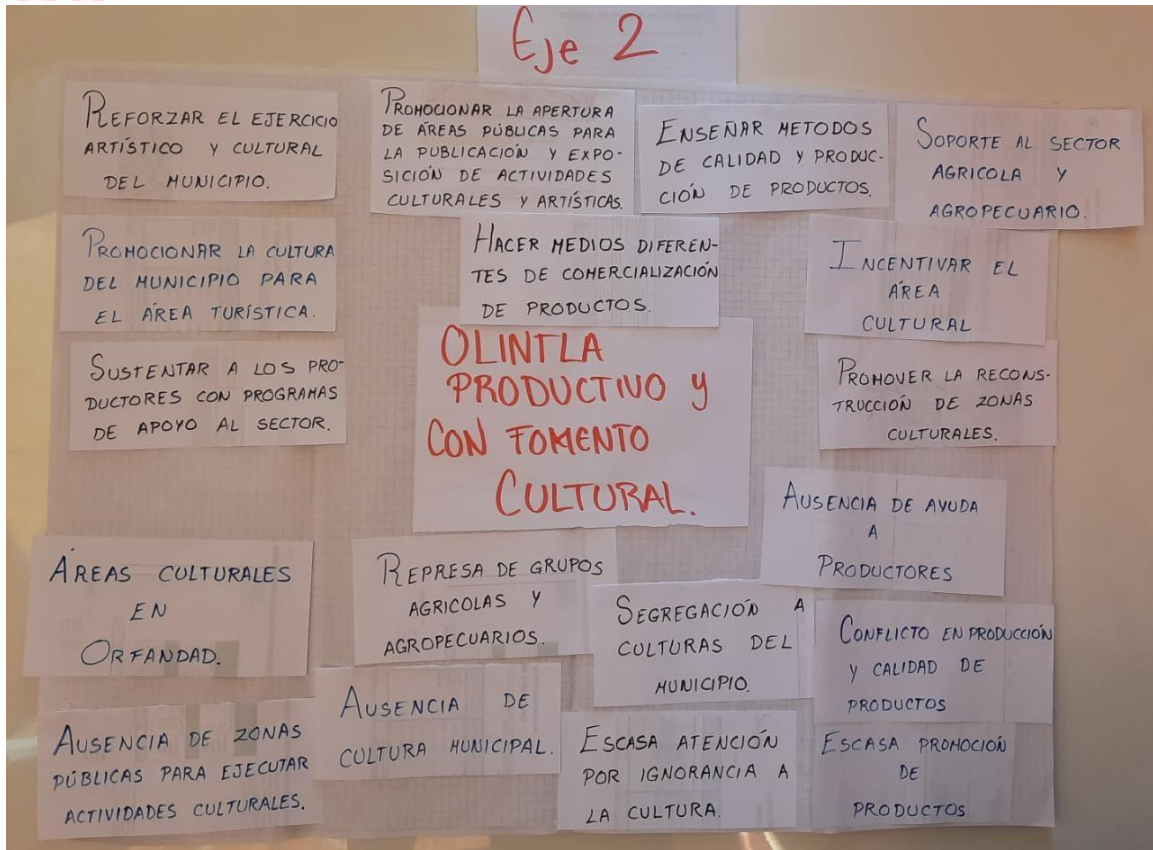 Eje 2
REFORZAR EL EJERCICIO
ARTÍSTICO Y CULTURAL
DEL MUNICIPIO.
PROMOCIONAR LA APERTURA
DE ÁREAS PÚBLICAS PARA
LA PUBLICACIÓN Y EXPO-
SICIÓN DE ACTIVIDADES
CULTURALES Y ARTÍSTICAS.
ENSEÑAR METODOS
DE CALIDAD Y PRODUC-
CIÓN DE PRODUCTOS.
SOPORTE AL SECTOR
AGRICOLA Y
AGROPECUARIO.
PROMOCIONAR LA CULTURA
DEL MUNICIPIO PARA
EL ÁREA TURÍSTICA.
HACER MEDIOS DIFEREN-
TES DE COMERCIALIZACIÓN
DE PRODUCTOS.
INCENTIVAR EL
ÁREA
CULTURAL
SUSTENTAR A LOS PRO-
DUCTORES CON PROGRAMAS
DE APOYO AL SECTOR.
OLINTLA
PRODUCTIVO y
CON FOMENTO
CULTURAL.
PROMOVER LA RECONS-
TRUCCIÓN DE ZONAS
CULTURALES.
AUSENCIA DE AYUDA
A
PRODUCTORES
ÁREAS CULTURALES
EN
ORFANDAD.
REPRESA DE GRUPOS
AGRICOLAS Y
AGROPECUARIOS.
SEGREGACIÓN A
CULTURAS DEL
MUNICIPIO.
CONFLICTO EN PRODUCCIÓN
Y CALIDAD DE
PRODUCTOS
AUSENCIA DE ZONAS
PÚBLICAS PARA EJECUTAR
ACTIVIDADES CULTURALES.
AUSENCIA DE
CULTURA MUNICIPAL.
ESCASA ATENCIÓN
POR IGNORANCIA A
LA CULTURA.
ESCASA PROMOCIÓN
DE
PRODUCTOS